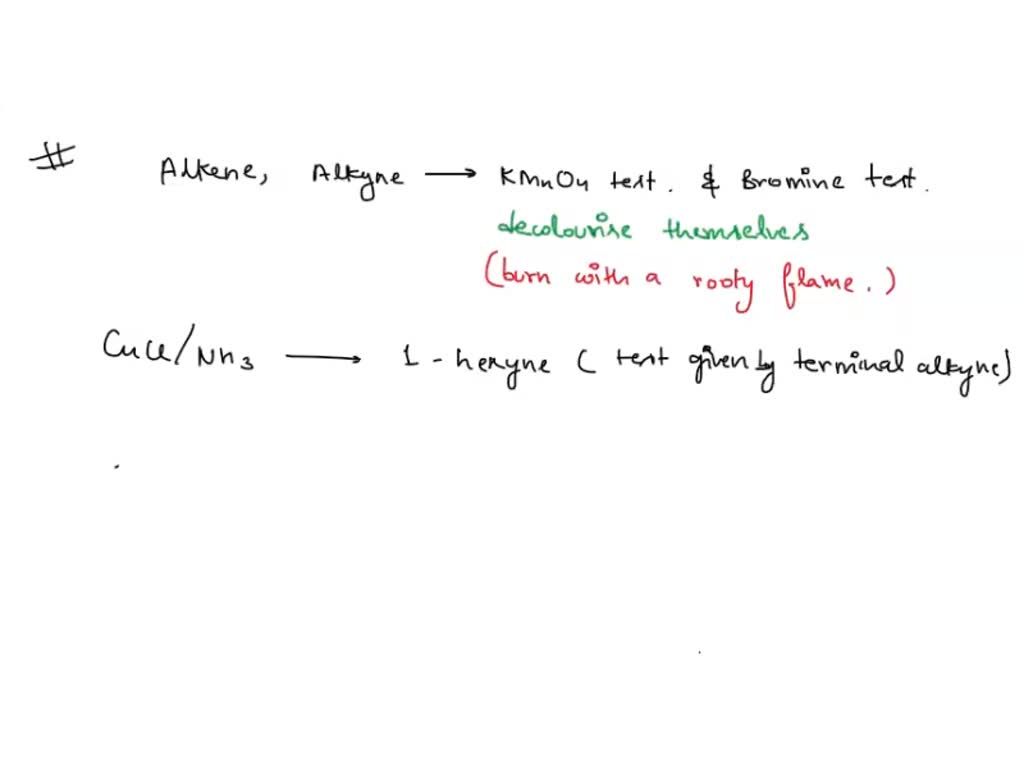 # Alkene, Alkyne → KMnO4 test. & Bromine test.
decolourise themselves
(burn with a rooty flame.)
CuCl/NH3 → 1-hexyne ( test given by terminal alkyne)